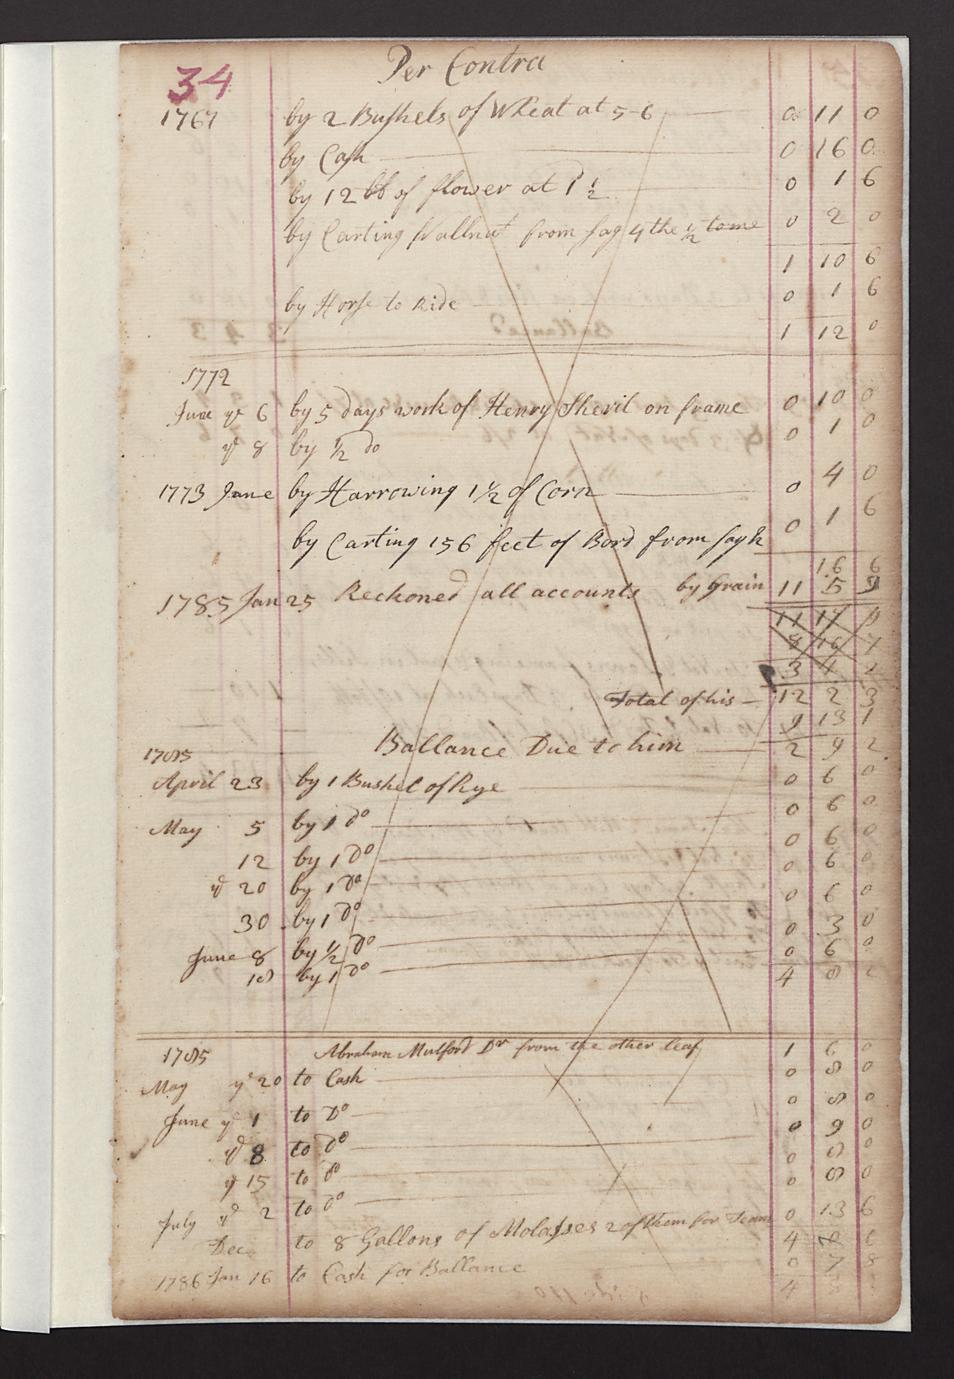 34
Per Contra
1767 by 2 Bushels of Wheat at 5-6 0 11 0
by Cash 0 16 0
by 12 lb of flower at 1 1/2 0 1 6
by Carting Wallnut from Sag 4 the 1/2 to me 0 2 0
1 10 6
by Horse to Ride 0 1 6
1 12 0
1772
June ye 6 by 5 days work of Henry Sheril on frame 0 10 0
ye 8 by 1/2 do 0 1 0
1773 June by Harrowing 1 1/2 of Corn 0 4 0
by Carting 156 feet of Bord from Sag h 0 1 6
16 6
1785 Jan 25 Reckoned all accounts by Grain 11 5 9
11 17
8 16 7
3 4
Total of his — 12 2 3
9 13 1
Ballance Due to him 2 9 2
1785
April 23 by 1 Bushel of Rye 0 6 0
May 5 by 1 Do 0 6 0
12 by 1 Do 0 6 0
ye 20 by 1 Do 0 6 0
30 by 1 Do 0 6 0
June 8 by 1/2 Do 0 3 0
18 by 1 Do 0 6 0
4 8 2
1785 Abraham Mulford Dr from the other leaf 1 6 0
May ye 20 to Cash 0 8 0
June ye 1 to Do 0 8 0
ye 8 to Do 0 9 0
ye 15 to Do 0 8 0
July ye 2 to Do 0 8 0
Dec to 8 Gallons of Molasses 2 of them for Team 0 13 6
4 6
1786 Jan 16 to Cash for Ballance 0 7 8
4